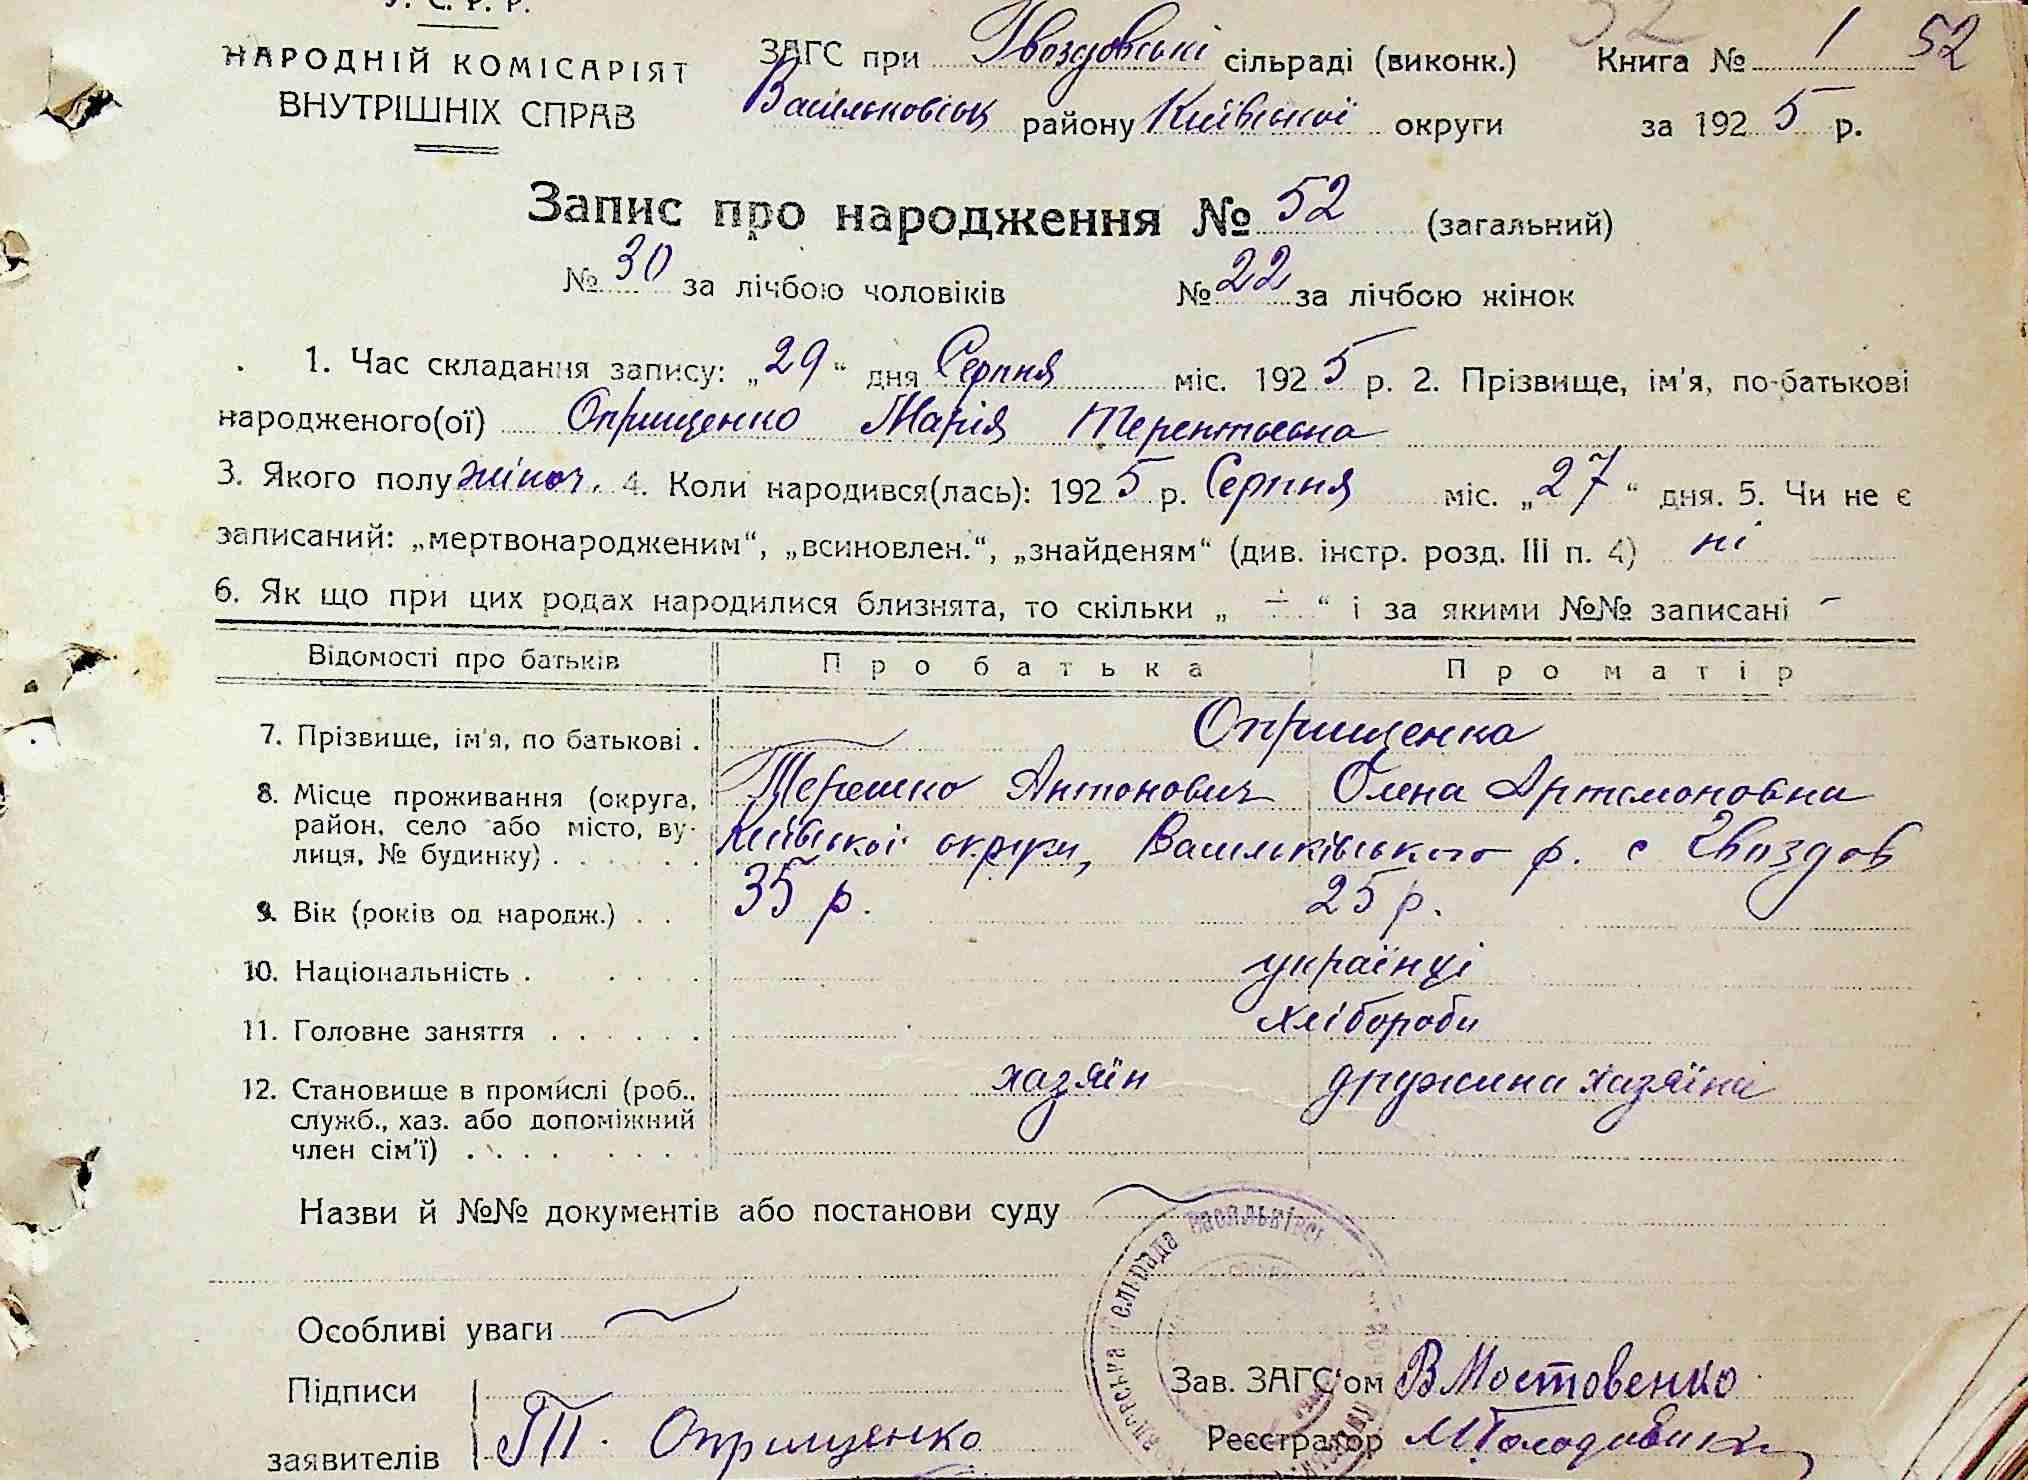 У. С. Р. Р.
НАРОДНІЙ КОМІСАРІЯТ
ВНУТРІШНІХ СПРАВ
ЗАГС при Гвоздовські сільраді (виконк.)
Васильковськ району Київської округи
Книга № 1 52
за 1925 р.
Запис про народження № 52 (загальний)
№ 30 за лічбою чоловіків № 22 за лічбою жінок
1. Час складання запису: „29“ дня Серпня міс. 1925 р. 2. Прізвище, ім'я, по-батькові
народженого(ої) Оприщенко Марія Терентьевна
3. Якого полу жіноч. 4. Коли народився(лась): 1925 р. Серпня міс. „27“ дня. 5. Чи не є
записаний: „мертвонародженим“, „всиновлен.“, „знайденям“ (див. інстр. розд. III п. 4) ні
6. Як що при цих родах народилися близнята, то скільки „ — “ і за якими №№ записані –
Відомості про батьків Про батька Про матір
7. Прізвище, ім'я, по батькові . Оприщенко
Терешко Антонович Олена Артемоновна
8. Місце проживання (округа,
район, село або місто, ву-
лиця, № будинку) . . . . . .
Київської округи, Васильківського р. с Гвоздов
9. Вік (років од народж.) . . 35 р. 25 р.
10. Національність . . . . . українці
11. Головне заняття . . . . . . хлібороби
12. Становище в промислі (роб.,
служб., хаз. або допоміжний
член сім'ї) . . . . . . . . .
хазяїн дружина хазяїна
Назви й №№ документів або постанови суду
Особливі уваги
Підписи
заявителів
ТП. Оприщенко
Зав. ЗАГС'ом ВМостовенко
Реєстратор
сільрада Васильківськ